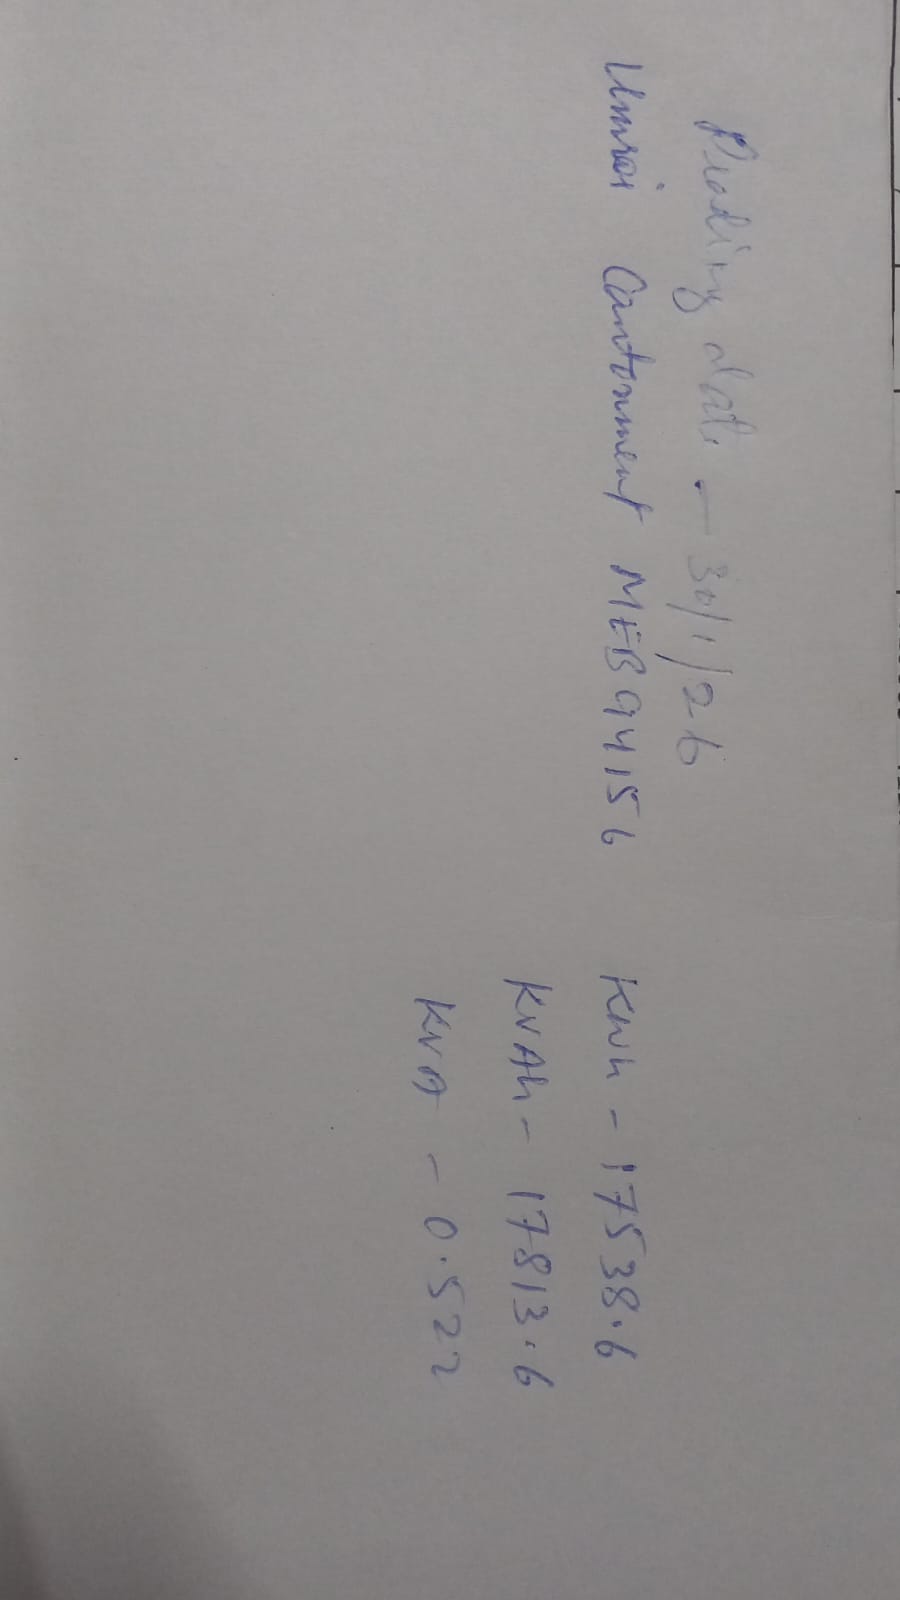 Reading date - 30/1/26
Umroi Cantonment MEB94156 Kwh - 17538.6
KVAh - 17813.6
KVA - 0.522